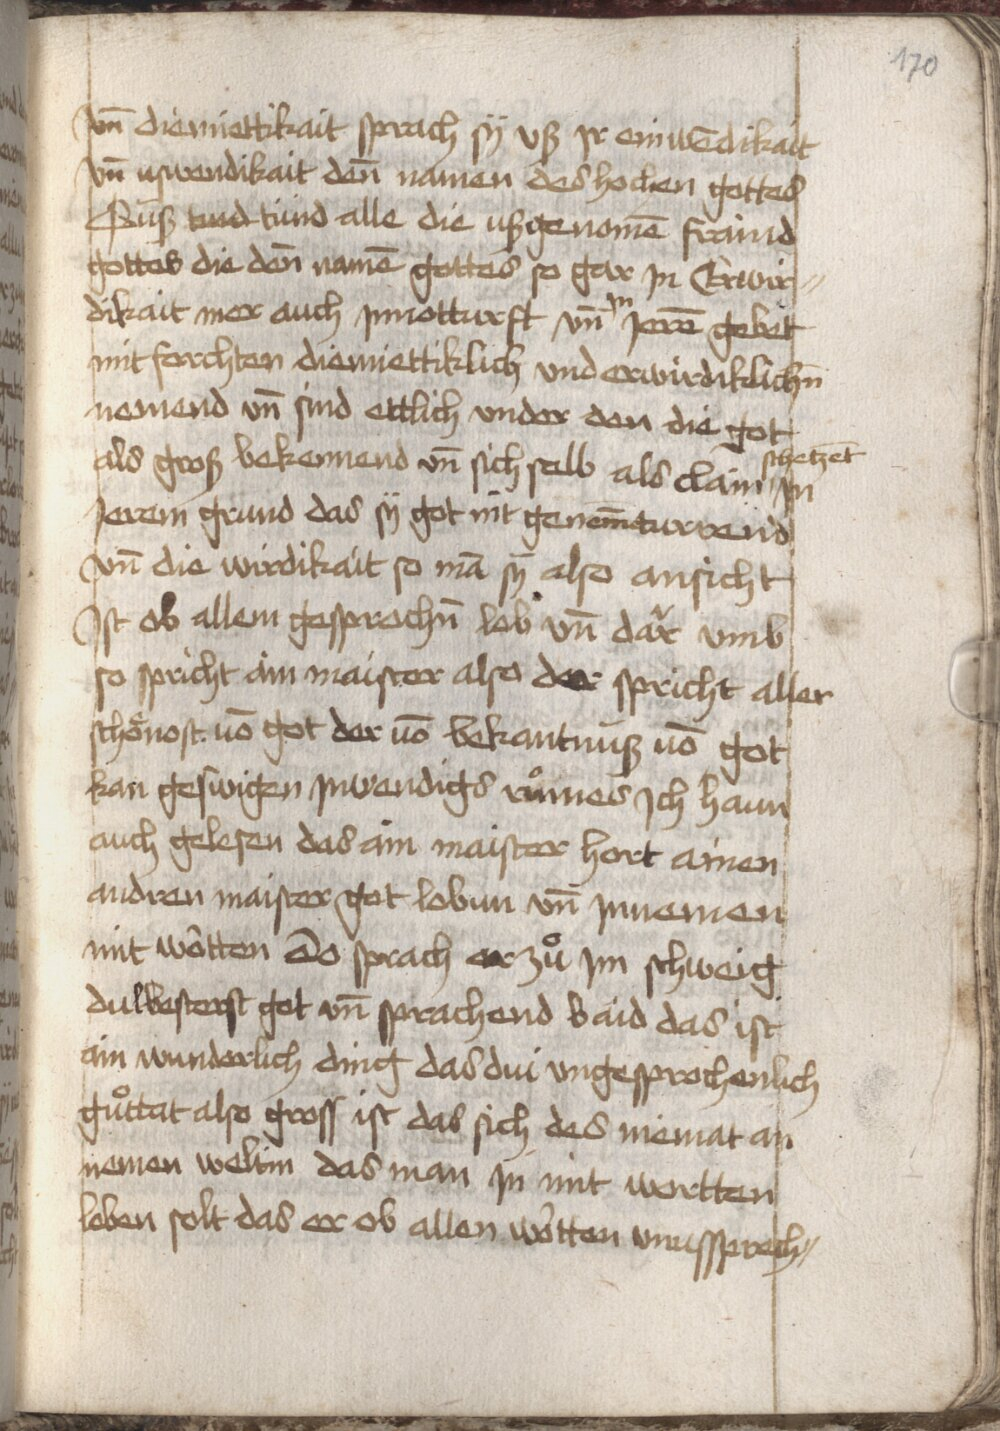 170
vn̄ diemiettikait sprach sÿ vß Ir einwēdikait
vn̄ uswendikait den̄ namen des hochen gottes
Suß tund alle die ußgenomē fraind
gottes die den̄ namē gottes so gar in Erwir〃
dikait mer auch innotturft vn̄ in Ierē gebet
mit forchten diemiettiklich vnd erwirdiklichn̄
nemend vn̄ sind ettlich vnder den die got
als groß bekennend vn̄ sich selb als clain schetzēt in
Ierem grund das sÿ got nit genem̄turrend
vn̄ die wirdikait so mā sy also ansicht
Ist ob allem gesprochn̄ lob vn̄ dar vmb
so spricht ain maister also der spricht aller
schönost uō got der uō bekantnuß uō got
kan geswigen Inwendigs růmes Ich haun
auch gelesen das ain maister hort ainen
andren maister got lobun vn̄ Innemen
mit wo᷑tten Do sprach er zů Im schweig
du lvesterst got vn̄ sprachend baid das ist
ain wunderlich ding das dui vngesprochenlich
gůttat also gross ist das sich des niemat an
nemen weltin das man In mit wortten
loben solt das er ob allen wo᷑tten vnussprech〃